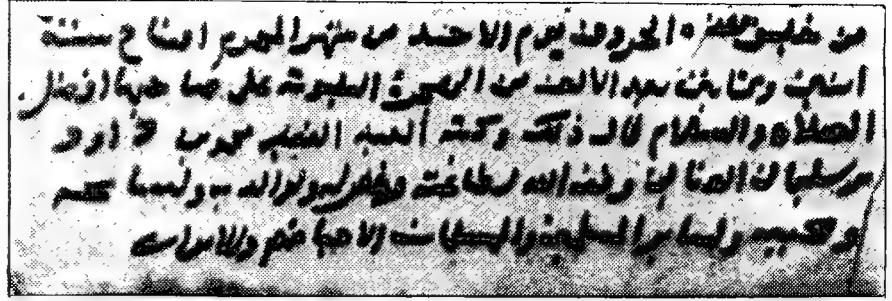 من تعليق هذه الحروف يوم الاحد من شهر المحرم افتتاح سنة
اثنين وثمانين بعد الالف من الهجرة النبوية على صاحبها افضل
الصلاة والسلام قال ذلك وكتبه العبد الفقير داود
بن سليمان وفقه الله لطاعته وغفر له ولوالديه ولمشايخه
ومحبيه ولسائر المسلمين والمسلمات الاحياء منهم والاموات